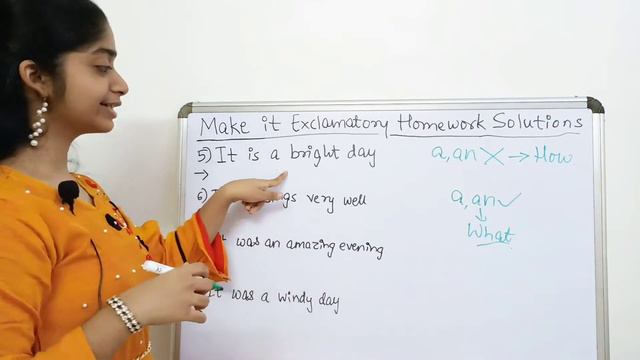 Make it Exclamatory Homework Solutions
5) It is a bright day
→
6) very well
was an amazing evening
It was a windy day
a, an X → How
a, an ✓
↓
What